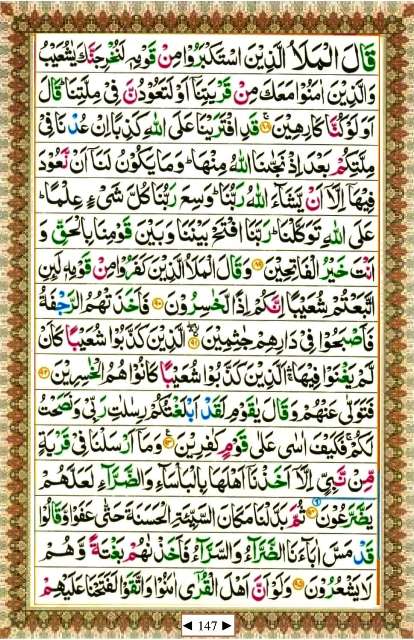 قَالَ الْمَلَاُ الَّذِيْنَ اسْتَكْبَرُوْا مِنْ قَوْمِهٖ لَنُخْرِجَنَّكَ يٰشُعَيْبُ
وَالَّذِيْنَ اٰمَنُوْا مَعَكَ مِنْ قَرْيَتِنَاۤ اَوْ لَتَعُوْدُنَّ فِيْ مِلَّتِنَا ؕ قَالَ
اَوَلَوْ كُنَّا كَارِهِيْنَ ۟ قَدِ افْتَرَيْنَا عَلَى اللّٰهِ كَذِبًا اِنْ عُدْنَا فِيْ
مِلَّتِكُمْ بَعْدَ اِذْ نَجّٰىنَا اللّٰهُ مِنْهَا ؕ وَمَا يَكُوْنُ لَنَاۤ اَنْ نَّعُوْدَ
فِيْهَاۤ اِلَّاۤ اَنْ يَّشَآءَ اللّٰهُ رَبُّنَا ؕ وَسِعَ رَبُّنَا كُلَّ شَيْءٍ عِلْمًا ؕ
عَلَى اللّٰهِ تَوَكَّلْنَا ؕ رَبَّنَا افْتَحْ بَيْنَنَا وَبَيْنَ قَوْمِنَا بِالْحَقِّ وَ
اَنْتَ خَيْرُ الْفَاتِحِيْنَ ۟ وَقَالَ الْمَلَاُ الَّذِيْنَ كَفَرُوْا مِنْ قَوْمِهٖ لَىِٕنِ
اتَّبَعْتُمْ شُعَيْبًا اِنَّكُمْ اِذًا لَّخٰسِرُوْنَ ۟ فَاَخَذَتْهُمُ الرَّجْفَةُ
فَاَصْبَحُوْا فِيْ دَارِهِمْ جٰثِمِيْنَ ۟ الَّذِيْنَ كَذَّبُوْا شُعَيْبًا كَاَنْ
لَّمْ يَغْنَوْا فِيْهَا ۚ اَلَّذِيْنَ كَذَّبُوْا شُعَيْبًا كَانُوْا هُمُ الْخٰسِرِيْنَ ۟
فَتَوَلّٰى عَنْهُمْ وَقَالَ يٰقَوْمِ لَقَدْ اَبْلَغْتُكُمْ رِسٰلٰتِ رَبِّيْ وَنَصَحْتُ
لَكُمْ ۚ فَكَيْفَ اٰسٰى عَلٰى قَوْمٍ كٰفِرِيْنَ ۟ وَمَاۤ اَرْسَلْنَا فِيْ قَرْيَةٍ
مِّنْ نَّبِيٍّ اِلَّاۤ اَخَذْنَاۤ اَهْلَهَا بِالْبَاْسَآءِ وَالضَّرَّآءِ لَعَلَّهُمْ
يَضَّرَّعُوْنَ ۟ ثُمَّ بَدَّلْنَا مَكَانَ السَّيِّئَةِ الْحَسَنَةَ حَتّٰى عَفَوْا وَّقَالُوْا
قَدْ مَسَّ اٰبَآءَنَا الضَّرَّآءُ وَالسَّرَّآءُ فَاَخَذْنٰهُمْ بَغْتَةً وَّهُمْ
لَا يَشْعُرُوْنَ ۟ وَلَوْ اَنَّ اَهْلَ الْقُرٰۤى اٰمَنُوْا وَاتَّقَوْا لَفَتَحْنَا عَلَيْهِمْ
◄ 147 ►